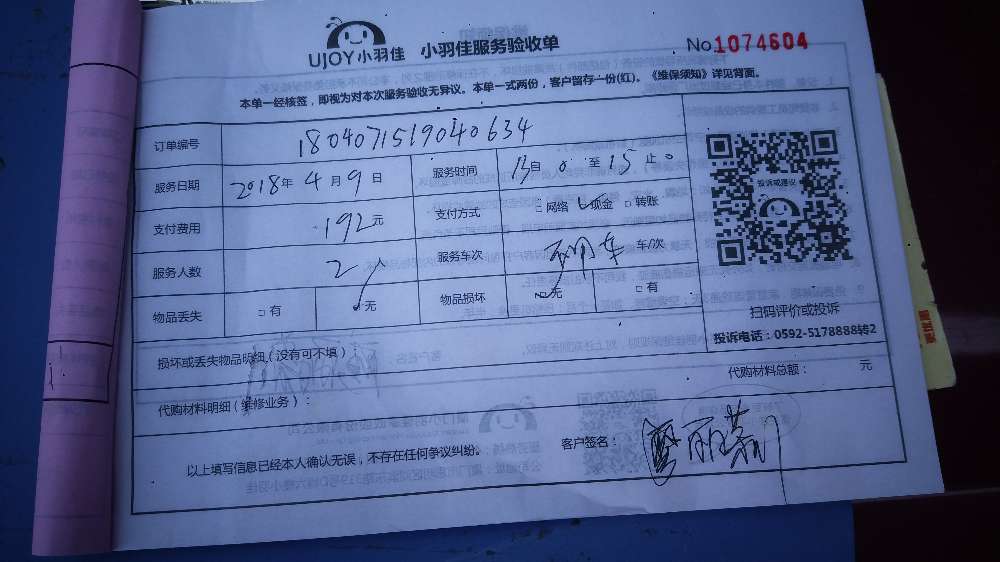 UJOY小羽佳 小羽佳服务验收单 No.1074604
本单一经核签，即视为对本次服务验收无异议。本单一式两份，客户留存一份(红)。《维保须知》详见背面。
订单编号 180407151904 0634
服务日期 2018年 4月 9日 服务时间 13自 0 至 15 止 0
支付费用 192元 支付方式 □网络 □现金 □转账
服务人数 2人 服务车次 车/次
物品丢失 □有 □无 物品损坏 □无 □有
投诉或建议
扫码评价或投诉
投诉电话：0592-5178888转2
损坏或丢失物品明细（没有可不填）
代购材料总额： 元
代购材料明细（维修业务）：
以上填写信息已经本人确认无误，不存在任何争议纠纷。 客户签名：